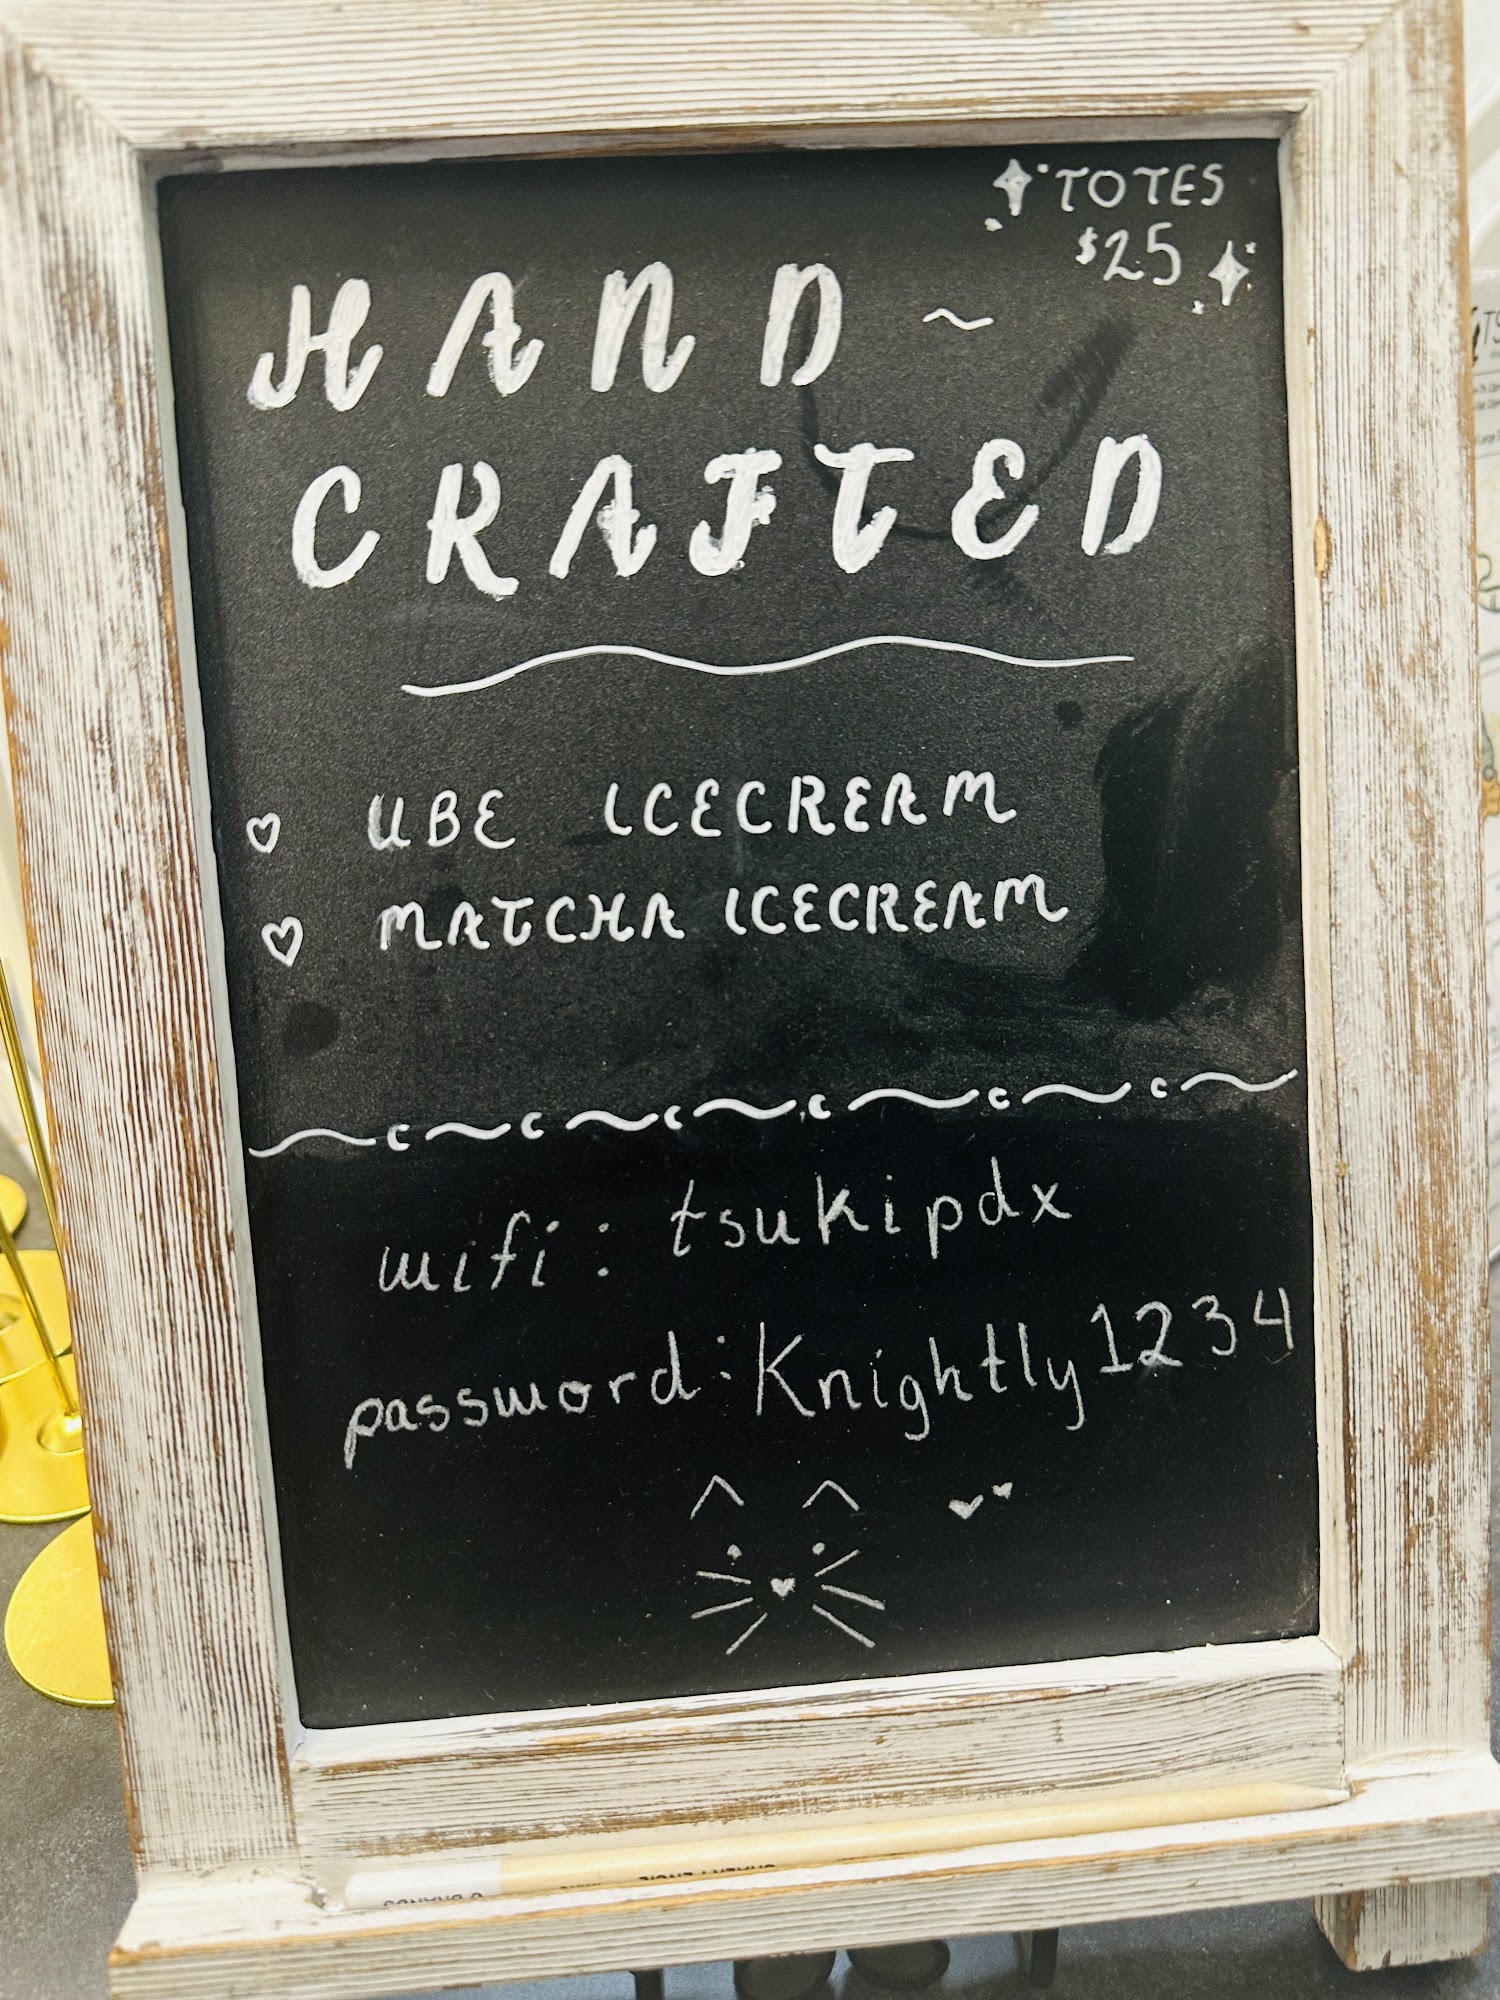 TOTES
$25
HAND~
CRAFTED
♡ UBE ICECREAM
♡ MATCHA ICECREAM
wifi: tsukipdx
password: Knightly1234